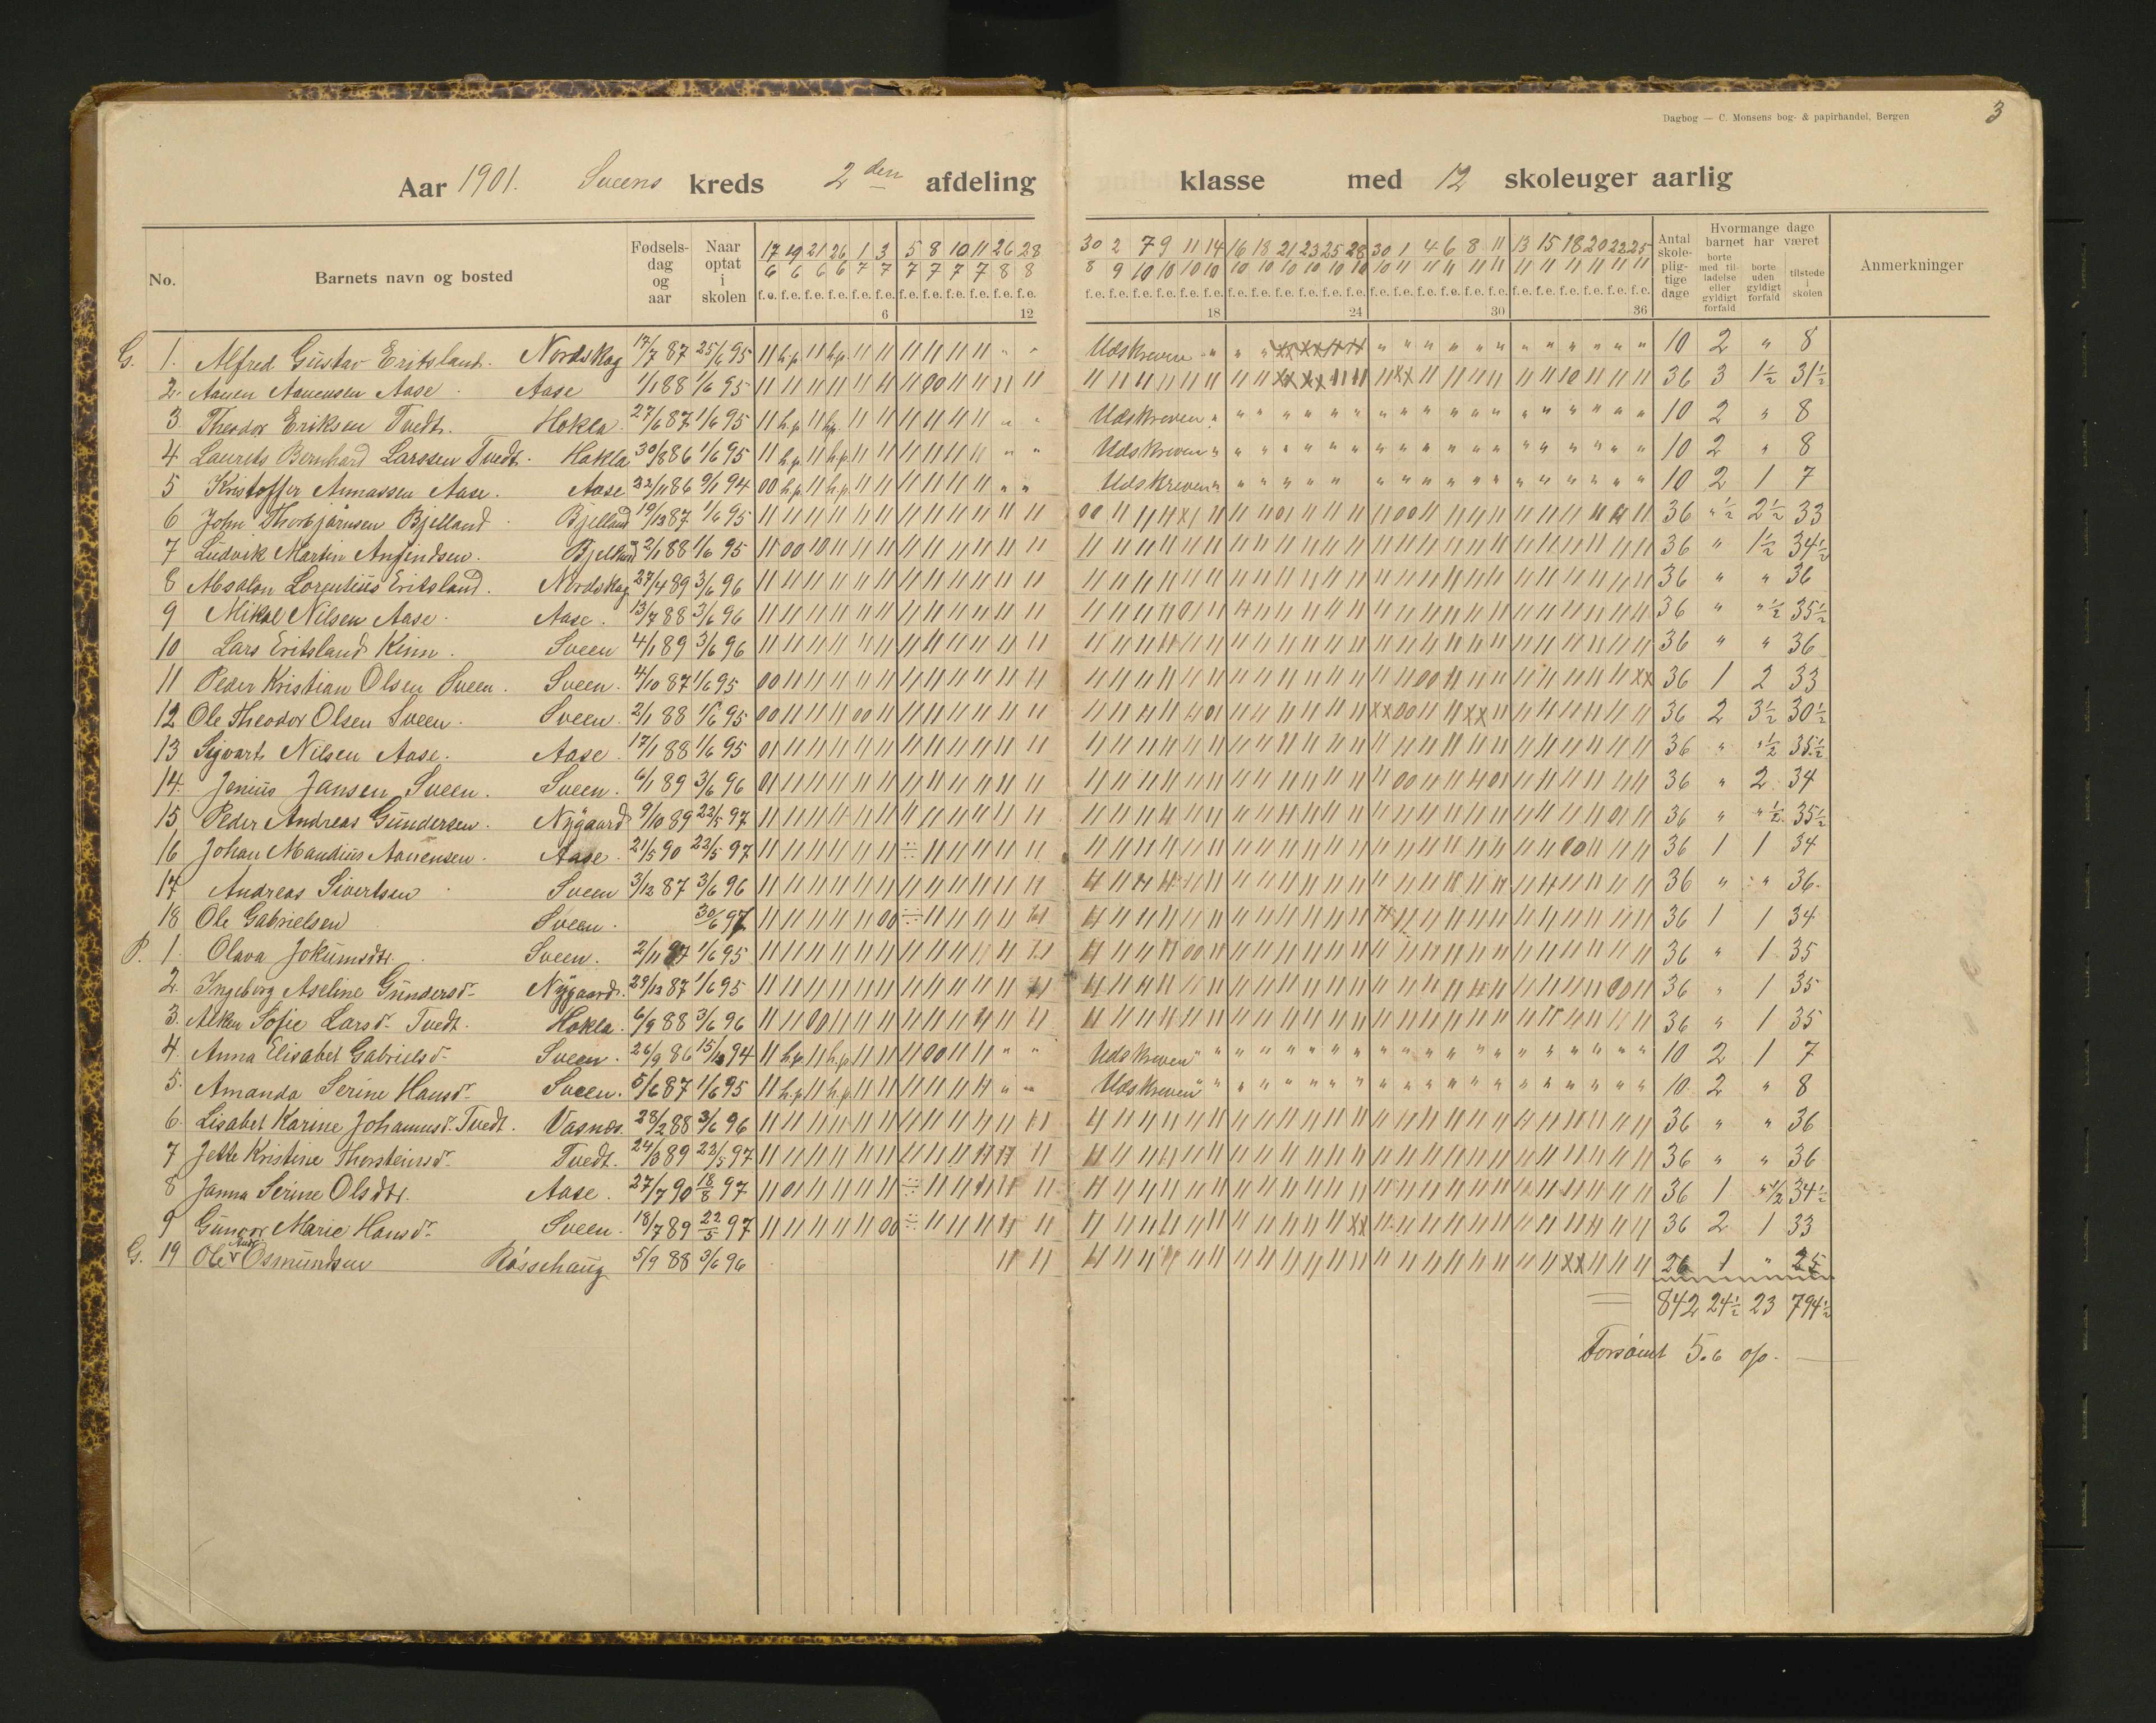 Dagbog — C. Monsens bog- & papirhandel, Bergen
3
Aar 1901. Sveens kreds 2 den afdeling klasse med 12 skoleuger aarlig
No. Barnets navn og bosted Fødsels-dag og aar Naar optat i skolen Antal skole-plig-tige dage Hvormange dage barnet har været borte med til-ladelse eller gyldigt forfald borte uden gyldigt forfald tilstede i skolen Anmerkninger
17/6 19/6 21/6 26/6 1/7 3/7 5/7 8/7 10/7 11/7 26/8 28/8 30/8 2/9 7/10 9/10 11/10 14/10 16/10 18/10 21/10 23/10 25/10 28/10 30/10 1/11 4/11 6/11 8/11 11/11 13/11 15/11 18/11 20/11 22/11 25/11
f.e. f.e. f.e. f.e. f.e. f.e. f.e. f.e. f.e. f.e. f.e. f.e. f.e. f.e. f.e. f.e. f.e. f.e. f.e. f.e. f.e. f.e. f.e. f.e. f.e. f.e. f.e. f.e. f.e. f.e. f.e. f.e. f.e. f.e. f.e. f.e.
6 12 18 24 30 36
G. 1. Alfred Gustav Eritsland. Nordskag 17/7 87 25/6 95 Udskreven 10 2 " 8
2. Aanen Aanensen Aase. Aase 1/1 88 1/6 95 36 3 1½ 31½
3. Theodor Eriksen Tvedt. Hokla. 27/6 87 1/6 95 Udskreven 10 2 " 8
4 Laurits Bernhard Larssen Tvedt. Hokla 30/8 86 1/6 95 Udskreven 10 2 " 8
5 Kristoffer Annassen Aase. Aase 22/11 86 9/1 94 Udskreven 10 2 1 7
6 John Thorbjørnsen Bjelland Bjelland 19/12 87 1/6 95 36 "½ 2½ 33
7 Ludvik Martin Anfindsen. Bjelland 2/1 88 1/6 95 36 " 1½ 34½
8 Absalon Lorentius Eritsland. Nordskag 27/4 89 3/6 96 36 " " 36
9 Mikal Nilsen Aase. Aase. 13/7 88 3/6 96 36 " "½ 35½
10 Lars Eritsland Kinn. Sveen 4/1 89 3/6 96 36 " " 36
11 Peder Kristian Olsen Sveen. Sveen. 4/10 87 1/6 95 36 1 2 33
12 Ole Theodor Olsen Sveen. Sveen. 2/1 88 1/6 95 36 2 3½ 30½
13 Sigvart Nilsen Aase. Aase. 17/1 88 1/6 95 36 " "½ 35½
14. Jenius Jansen Sveen. Sveen. 6/1 89 3/6 96 36 " 2 34
15 Peder Andreas Gundersen. Nygaard 9/10 89 22/5 97 36 " "½ 35½
16 Johan Mandius Aanensen. Aase. 21/5 90 22/5 97 36 1 1 34
17 Andreas Sivertsen Sveen 3/12 87 3/6 96 36 " " 36.
18 Ole Gabrielsen Sveen. 30/6 97 36 1 1 34
P. 1. Olava Jokumsdtr. Sveen. 2/11 87 1/6 95 36 " 1 35
2. Ingeborg Aseline Gundersd. Nygaard. 29/12 87 1/6 95 36 " 1 35
3. Alken Sofie Larsd. Tvedt. Hokla. 6/9 88 3/6 96 36 " 1 35
4. Anna Elisabet Gabrielsd. Sveen. 26/9 86 15/12 94 Udskreven 10 2 1 7
5. Amanda Serine Hansd. Sveen. 5/6 87 1/6 95 Udskreven 10 2 " 8
6. Lisabet Karine Johannesd. Tvedt. Vasnds. 28/2 88 3/6 96 36 " " 36
7 Jette Kristine Thorsteinsd. Tvedt. 24/10 89 22/5 97 36 " " 36
8 Janna Serine Olsdtr. Aase. 27/7 90 18/8 97 36 1 "½ 34½
9 Gunvor Marie Hansd. Sveen. 18/7 89 22/5 97 36 2 1 33
G. 19 Ole Osmundsen Røssehaug 5/9 88 3/6 96 26 1 " 25
842 24½ 23 794½
Forsømt 5.6 o/o.